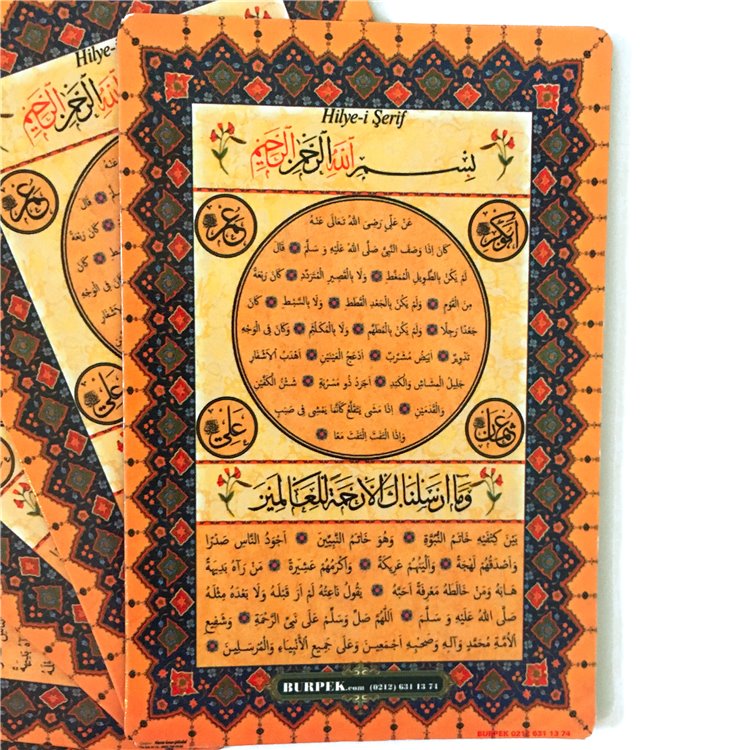 Hilye-i Şerif
بِسْمِ اللّٰهِ الرَّحْمٰنِ الرَّحِيمِ
ابوبكر
عمر
عَنْ عَلِيٍّ رَضِىَ اللّٰهُ تَعَالٰى عَنْهُ
كَانَ اِذَا وَصَفَ النَّبِىَّ صَلَّى اللّٰهُ عَلَيْهِ وَ سَلَّمَ قَالَ
لَمْ يَكُنْ بِالطَّوِيلِ الْمُمَّغَطِ وَلَا بِالْقَصِيرِ الْمُتَرَدِّدِ كَانَ رَبْعَةً
مِنَ الْقَوْمِ وَلَمْ يَكُنْ بِالْجَعْدِ الْقَطَطِ وَلَا بِالسَّبْطِ كَانَ
جَعْدًا رَجِلًا وَلَمْ يَكُنْ بِالْمُطَهَّمِ وَلَا بِالْمُكَلْثَمِ وَكَانَ فِى الْوَجْهِ
تَدْوِيرٌ اَبْيَضُ مُشْرَبٌ اَدْعَجُ الْعَيْنَيْنِ اَهْدَبُ الْاَشْفَارِ
جَلِيلُ الْمُشَاشِ وَالْكَتَدِ اَجْرَدُ ذُو مَسْرُبَةٍ شَثْنُ الْكَفَّيْنِ
وَالْقَدَمَيْنِ اِذَا مَشَى يَتَقَلَّعُ كَاَنَّمَا يَمْشِى فِى صَبَبٍ
وَاِذَا الْتَفَتَ الْتَفَتَ مَعًا
عثمان
علي
وَمَا اَرْسَلْنَاكَ اِلَّا رَحْمَةً لِلْعَالَمِينَ
بَيْنَ كَتِفَيْهِ خَاتَمُ النُّبُوَّةِ وَهُوَ خَاتَمُ النَّبِيِّينَ اَجْوَدُ النَّاسِ صَدْرًا
وَاَصْدَقُهُمْ لَهْجَةً وَاَلْيَنُهُمْ عَرِيكَةً وَاَكْرَمُهُمْ عَشِيرَةً مَنْ رَآهُ بَدِيهَةً
هَابَهُ وَمَنْ خَالَطَهُ مَعْرِفَةً اَحَبَّهُ يَقُولُ نَاعِتُهُ لَمْ اَرَ قَبْلَهُ وَلَا بَعْدَهُ مِثْلَهُ
صَلَّى اللّٰهُ عَلَيْهِ وَ سَلَّمَ اَللّٰهُمَّ صَلِّ وَسَلِّمْ عَلٰى نَبِىِّ الرَّحْمَةِ وَشَفِيعِ
الْاُمَّةِ مُحَمَّدٍ وَآلِهِ وَصَحْبِهِ اَجْمَعِينَ وَعَلٰى جَمِيعِ الْاَنْبِيَاءِ وَالْمُرْسَلِينَ
BURPEK.com (0212) 631 13 74
BURPEK 0212 631 13 74
Hilye-i
اللّٰهِ الرَّحْمٰنِ الرَّحِيمِ
عمر
علي